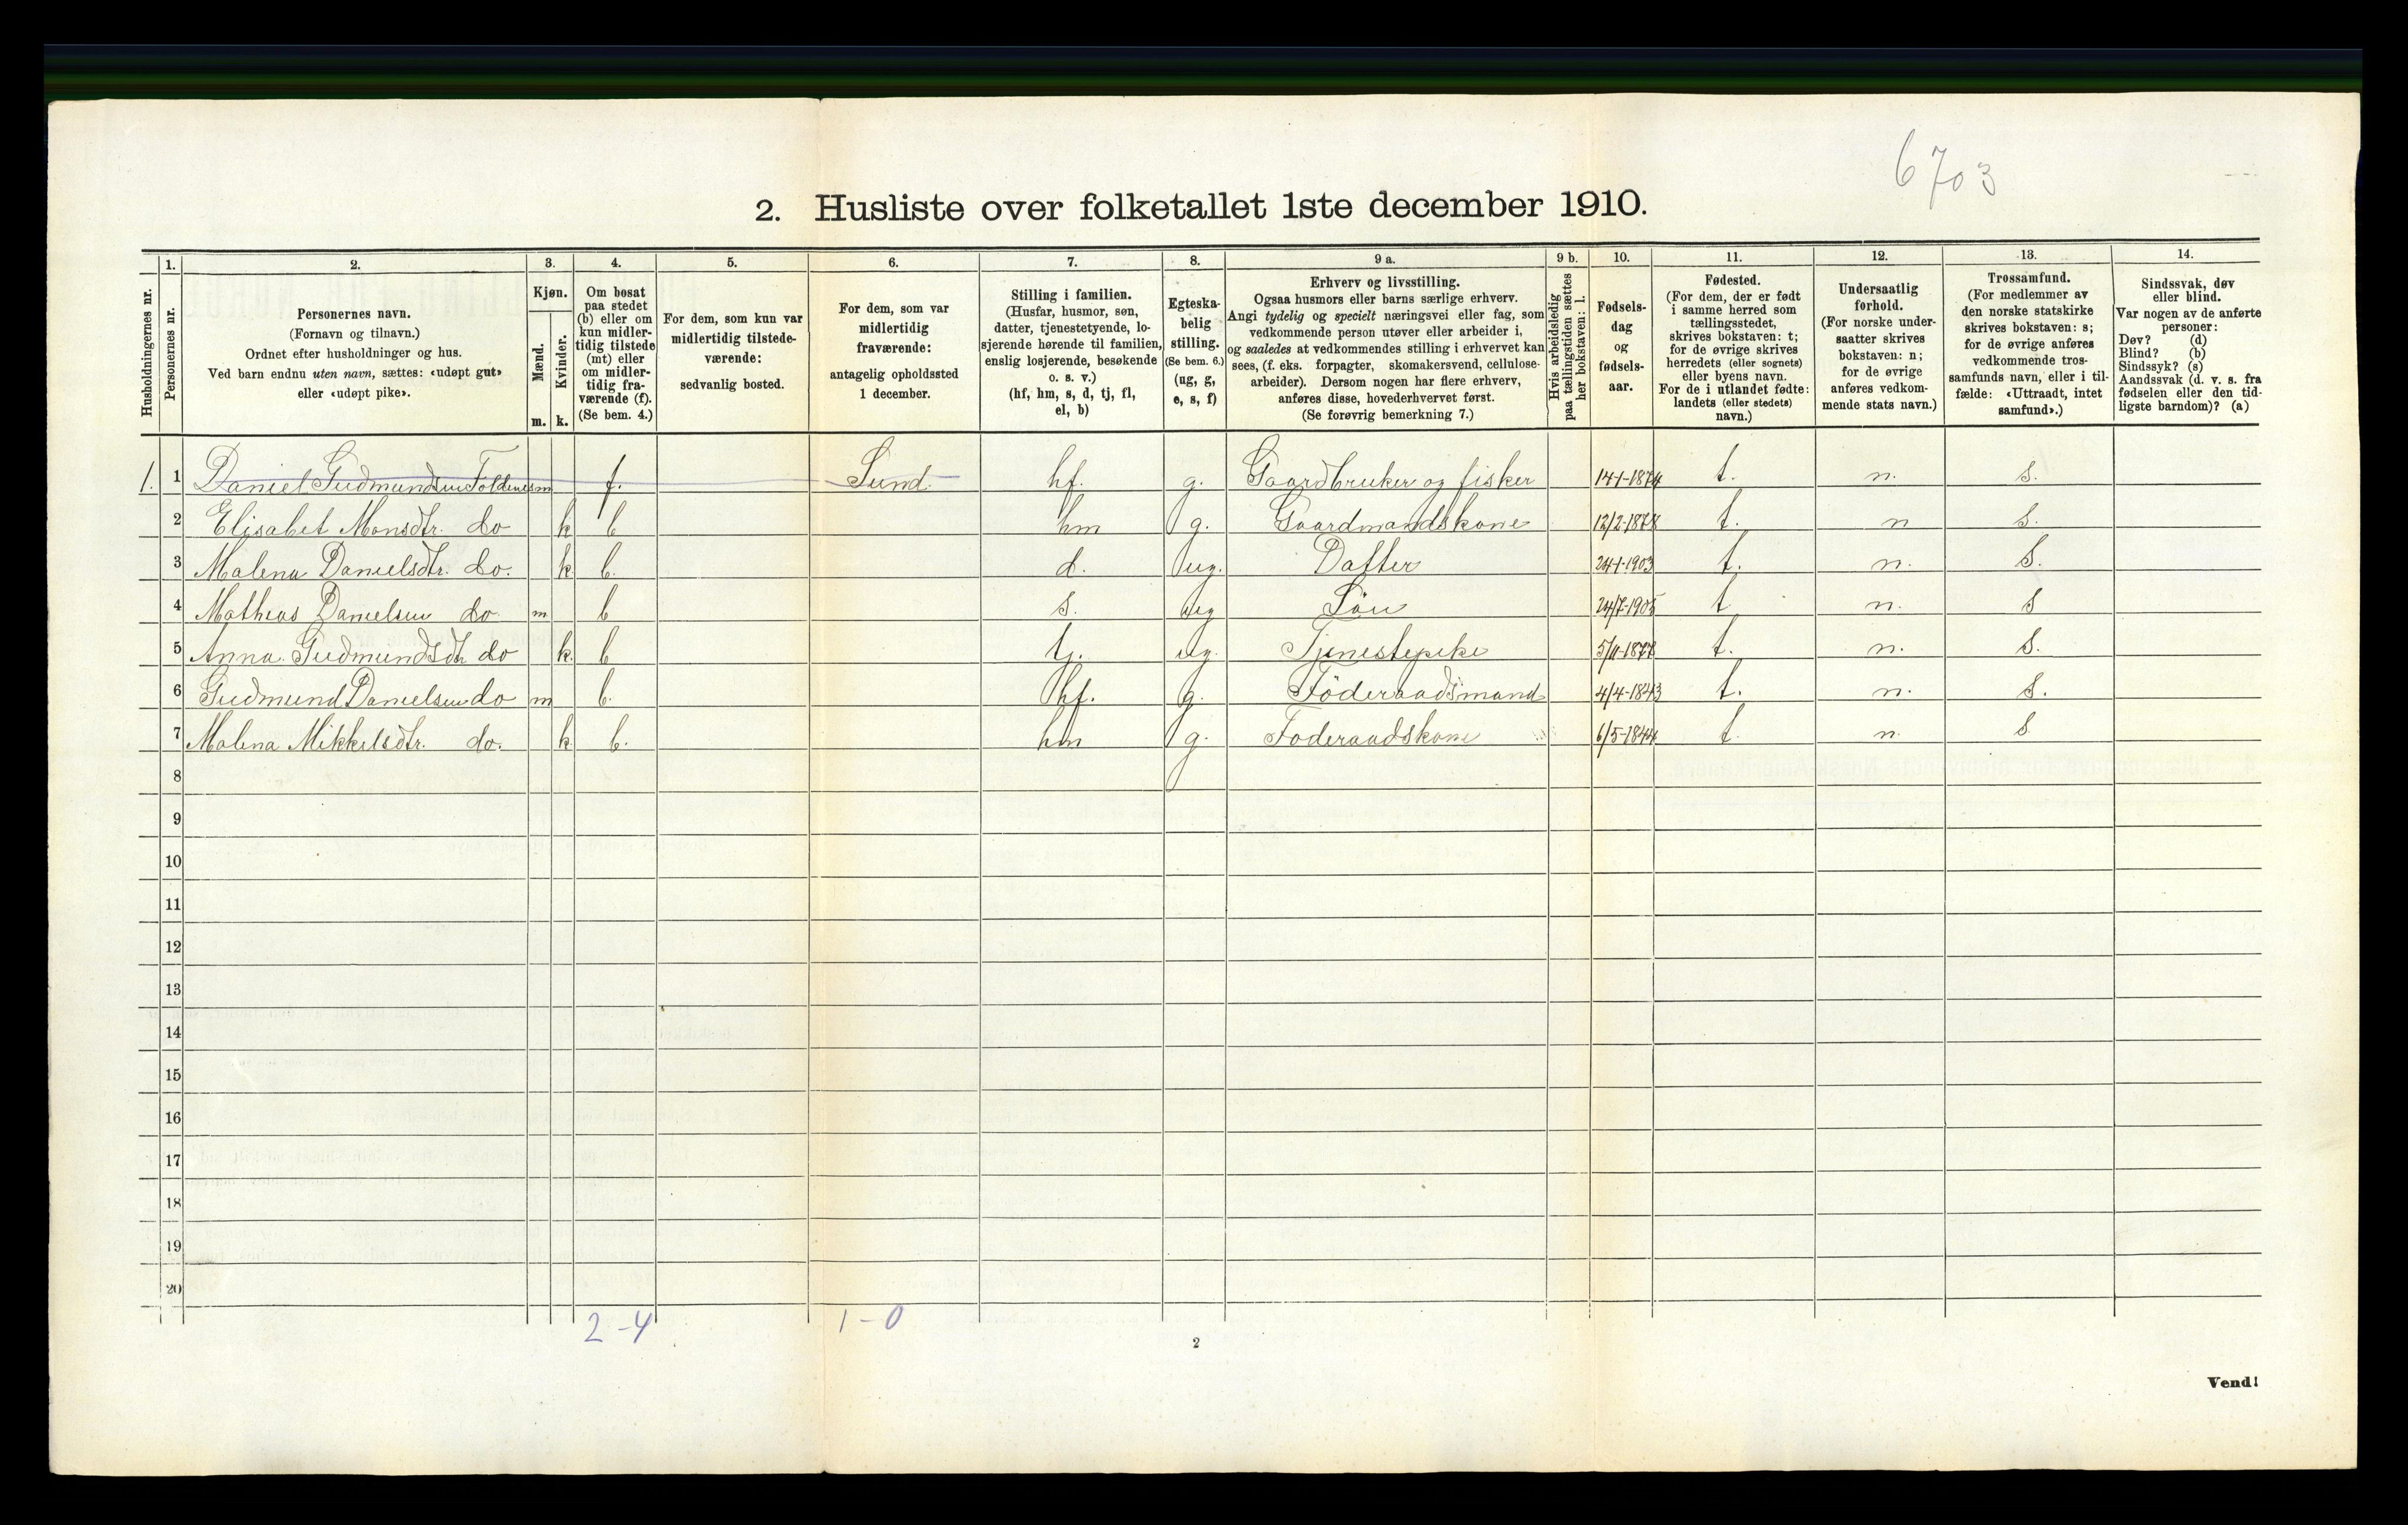 6703
2. Husliste over folketallet 1ste december 1910.
Husholdningernes nr.
1.
Personernes nr.
2.
Personernes navn.
(Fornavn og tilnavn.)
Ordnet efter husholdninger og hus.
Ved barn endnu uten navn, sættes: «udøpt gut»
eller «udøpt pike».
3.
Kjøn.
Mænd.
Kvinder.
m. k.
4.
Om bosat
paa stedet
(b) eller om
kun midler-
tidig tilstede
(mt) eller
om midler-
tidig fra-
værende (f).
(Se bem. 4.)
5.
For dem, som kun var
midlertidig tilstede-
værende:
sedvanlig bosted.
6.
For dem, som var
midlertidig
fraværende:
antagelig opholdssted
1 december.
7.
Stilling i familien.
(Husfar, husmor, søn,
datter, tjenestetyende, lo-
sjerende hørende til familien,
enslig losjerende, besøkende
o. s. v.)
(hf, hm, s, d, tj, fl,
el, b)
8.
Egteska-
belig
stilling.
(Se bem. 6.)
(ug, g,
e, s, f)
9 a.
Erhverv og livsstilling.
Ogsaa husmors eller barns særlige erhverv.
Angi tydelig og specielt næringsvei eller fag, som
vedkommende person utøver eller arbeider i,
og saaledes at vedkommendes stilling i erhvervet kan
sees, (f. eks. forpagter, skomakersvend, cellulose-
arbeider). Dersom nogen har flere erhverv,
anføres disse, hovederhvervet først.
(Se forøvrig bemerkning 7.)
9 b.
Hvis arbeidsledig
paa tællingstiden sættes
her bokstaven: l.
10.
Fødsels-
dag
og
fødsels-
aar.
11.
Fødested.
(For dem, der er født
i samme herred som
tællingsstedet,
skrives bokstaven: t;
for de øvrige skrives
herredets (eller sognets)
eller byens navn.
For de i utlandet fødte:
landets (eller stedets)
navn.)
12.
Undersaatlig
forhold.
(For norske under-
saatter skrives
bokstaven: n;
for de øvrige
anføres vedkom-
mende stats navn.)
13.
Trossamfund.
(For medlemmer av
den norske statskirke
skrives bokstaven: s;
for de øvrige anføres
vedkommende tros-
samfunds navn, eller i til-
fælde: «Uttraadt, intet
samfund».)
14.
Sindssvak, døv
eller blind.
Var nogen av de anførte
personer:
Døv? (d)
Blind? (b)
Sindssyk? (s)
Aandssvak (d. v. s. fra
fødselen eller den tid-
ligste barndom)? (a)
1. 1 Daniel Gudmundsen Foldenes m f. Sund hf. g. Gaardbruker og fisker 14-1-1874 t. n. s.
2 Elisabet Monsdtr. do k b hm g. Gaardmandskone 12/2-1878 t. n s.
3 Malena Danielsdtr. do. k b. d. ug. Datter 24-1-1903 t. n. s.
4 Mathias Danielsen do m b s. ug Søn 24/7-1905 t n. s
5 Anna Gudmundsdtr do k. b tj. ug. Tjenestepike 5/11-1877 t. n. s.
6 Gudmund Danielsen do m b. hf. g. Föderaadsmand 4/4-1843 t. n. s.
7 Malena Mikkelsdtr. do. k b. hm g. Foderaadskone 6/5-1844 t. n. s
8
9
10
11
12
13
14
15
16
17
18
19
20
2-4 1-0
2
Vend!